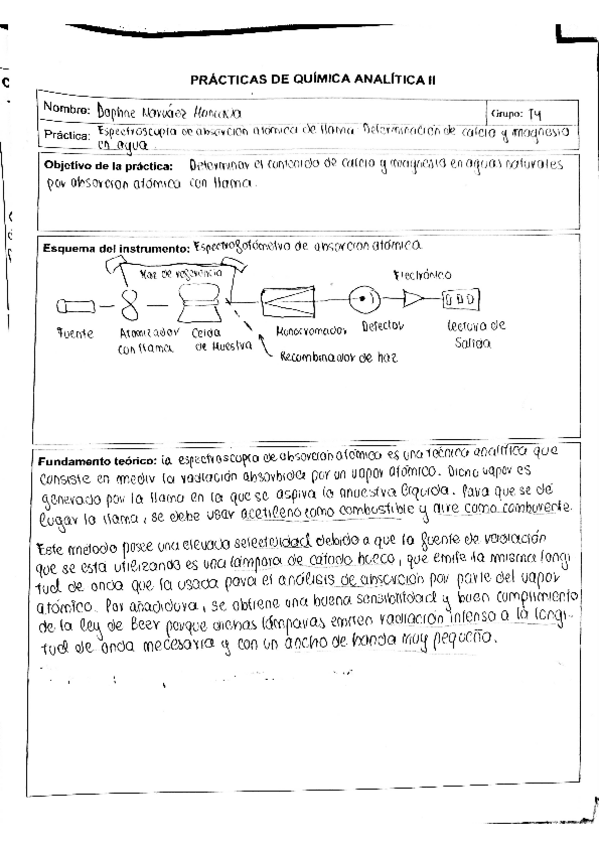 PRÁCTICAS DE QUÍMICA ANALÍTICA II
Nombre: Daphne Narváez
Grupo: T4
Práctica: Espectroscopia de absorción atómica de llama. Determinación de calcio y magnesio
en agua
Objetivo de la práctica: Determinar el contenido de calcio y magnesio en aguas naturales
por absorción atómica con llama.
Esquema del instrumento: Espectrofotómetro de absorción atómica
Haz de referencia
Electrónica
Fuente
Atomizador
con llama
Celda
de Muestra
Monocromador
Detector
Lectura de
Salida
Recombinador de haz
Fundamento teórico: la espectroscopia de absorción atómica es una técnica analítica que
consiste en medir la radiación absorbida por un vapor atómico. Dicho vapor es
generado por la llama en la que se aspira la muestra líquida. Para que se dé
lugar la llama, se debe usar acetileno como combustible y aire como comburente.
Este método posee una elevada selectividad debido a que la fuente de radiación
que se esta utilizando es una lámpara de cátodo hueco, que emite la misma longi
tud de onda que la usada para el análisis de absorción por parte del vapor
atómico. Por añadidura, se obtiene una buena sensibilidad y buen cumplimiento
de la ley de Beer porque dichas lámparas emiten radiación intensa a la longi-
tud de onda necesaria y con un ancho de banda muy pequeño.